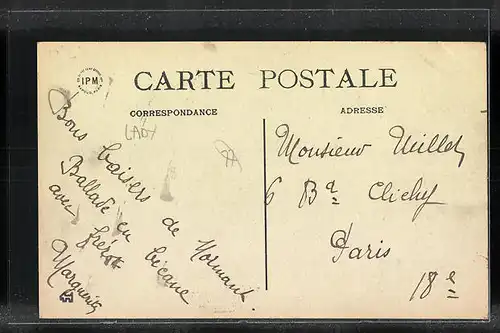 IPM
CARTE POSTALE
CORRESPONDANCE
ADRESSE
LADY
Bons baisers de Normant
Ballade en bécane
avec frérot
Marguerite
Monsieur Meillet
6 Bd Clichy
Paris
18e